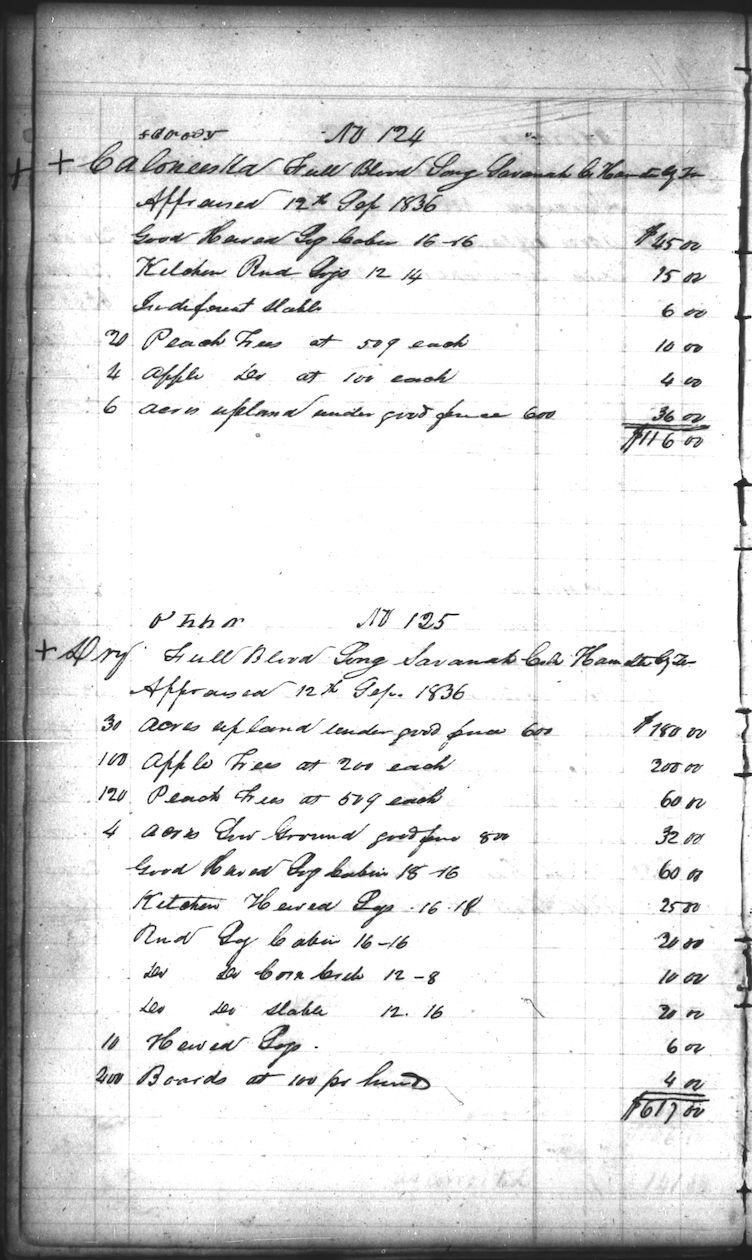 No 124
+ + Full Blood Long Savanah C. Ham
Appraised 12th Sep 1836
Good Hewed Log Cabin 16-16 $45 00
Kitchen Rnd Logs 12 14 15 00
Indiferent Stable 6 00
20 Peach Trees at 50¢ each 10 00
4 Apple Do at 100 each 4 00
6 Acres upland under good fence 600 36 00
$116 00
No 125
+ Dry Full Blood Long Savanah Creek Hamilton Cy Te
Appraised 12th Sep. 1836
30 Acres upland under good fence 600 $180 00
100 Apple Trees at 200 each 200 00
120 Peach Trees at 50¢ each 60 00
4 Acres Low Ground good fence 800 32 00
Good Hewed Log Cabin 18-16 60 00
Kitchen Hewed Logs 16-18 25 00
Rnd Log Cabin 16-16 20 00
Do Do Corn Crib 12-8 10 00
Do Do Stable 12.16 20 00
10 Hewed Logs. 6 00
200 Boards at 100 pr hund 4 00
$617 00